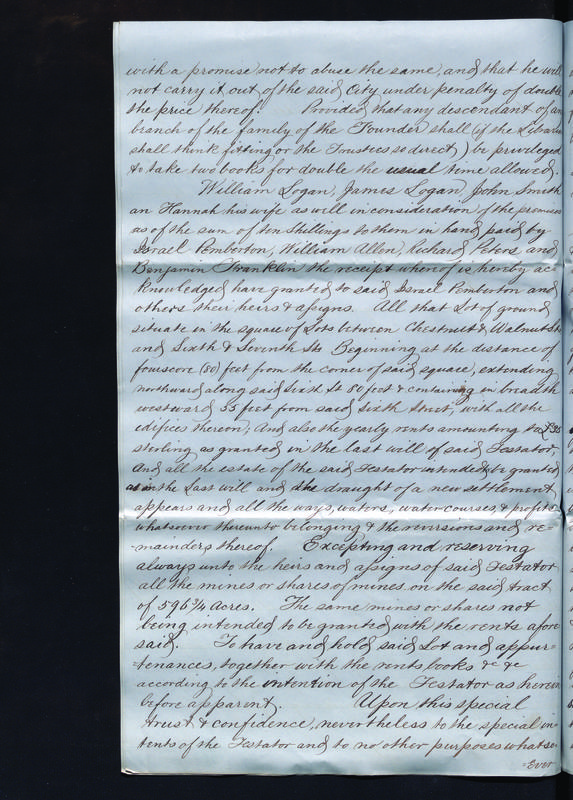 with a promise not to abuse the same, and that he will
not carry it out of the said City under penalty of double
the price thereof. Provided that any descendant of any
branch of the family of the Founder shall (if the Librarian
shall think fitting or the Trustees so direct) be privileged
to take two books for double the usual time allowed.
William Logan, James Logan, John Smith
an Hannah his wife as well in consideration of the premises
as of the sum of ten Shillings to them in hand paid by
Israel Pemberton, William Allen, Richard Peters and
Benjamin Franklin the receipt whereof is hereby ac-
knowledged have granted to said Israel Pemberton and
others their heirs & assigns. All that Lot of ground
situate in the square of Lots between Chestnut & Walnut Sts
and Sixth & Seventh Sts Beginning at the distance of
fourscore (80) feet from the corner of said square, extending
northward along said Sixth St 80 feet & containing in breadth
westward 55 feet from said Sixth Street, with all the
edifices thereon; And also the yearly rents amounting to £35
sterling as granted in the last will of said Testator,
And all the estate of the said Testator intended to be granted
as in the Last will and the draught of a new settlement
appears and all the ways, waters, water courses & profits
whatsoever thereunto belonging & the reversions and re-
mainders thereof. Excepting and reserving
always unto the heirs and assigns of said Testator
all the mines or shares of mines on the said tract
of 596 3/4 Acres. The same mines or shares not
being intended to be granted with the rents afore
said. To have and hold said Lot and appur=
=tenances, together with the rents books &c &c
according to the intention of the Testator as herein
before apparent. Upon this special
trust & confidence, nevertheless to the special in
tents of the Testator and to no other purposes whatso-
=ever